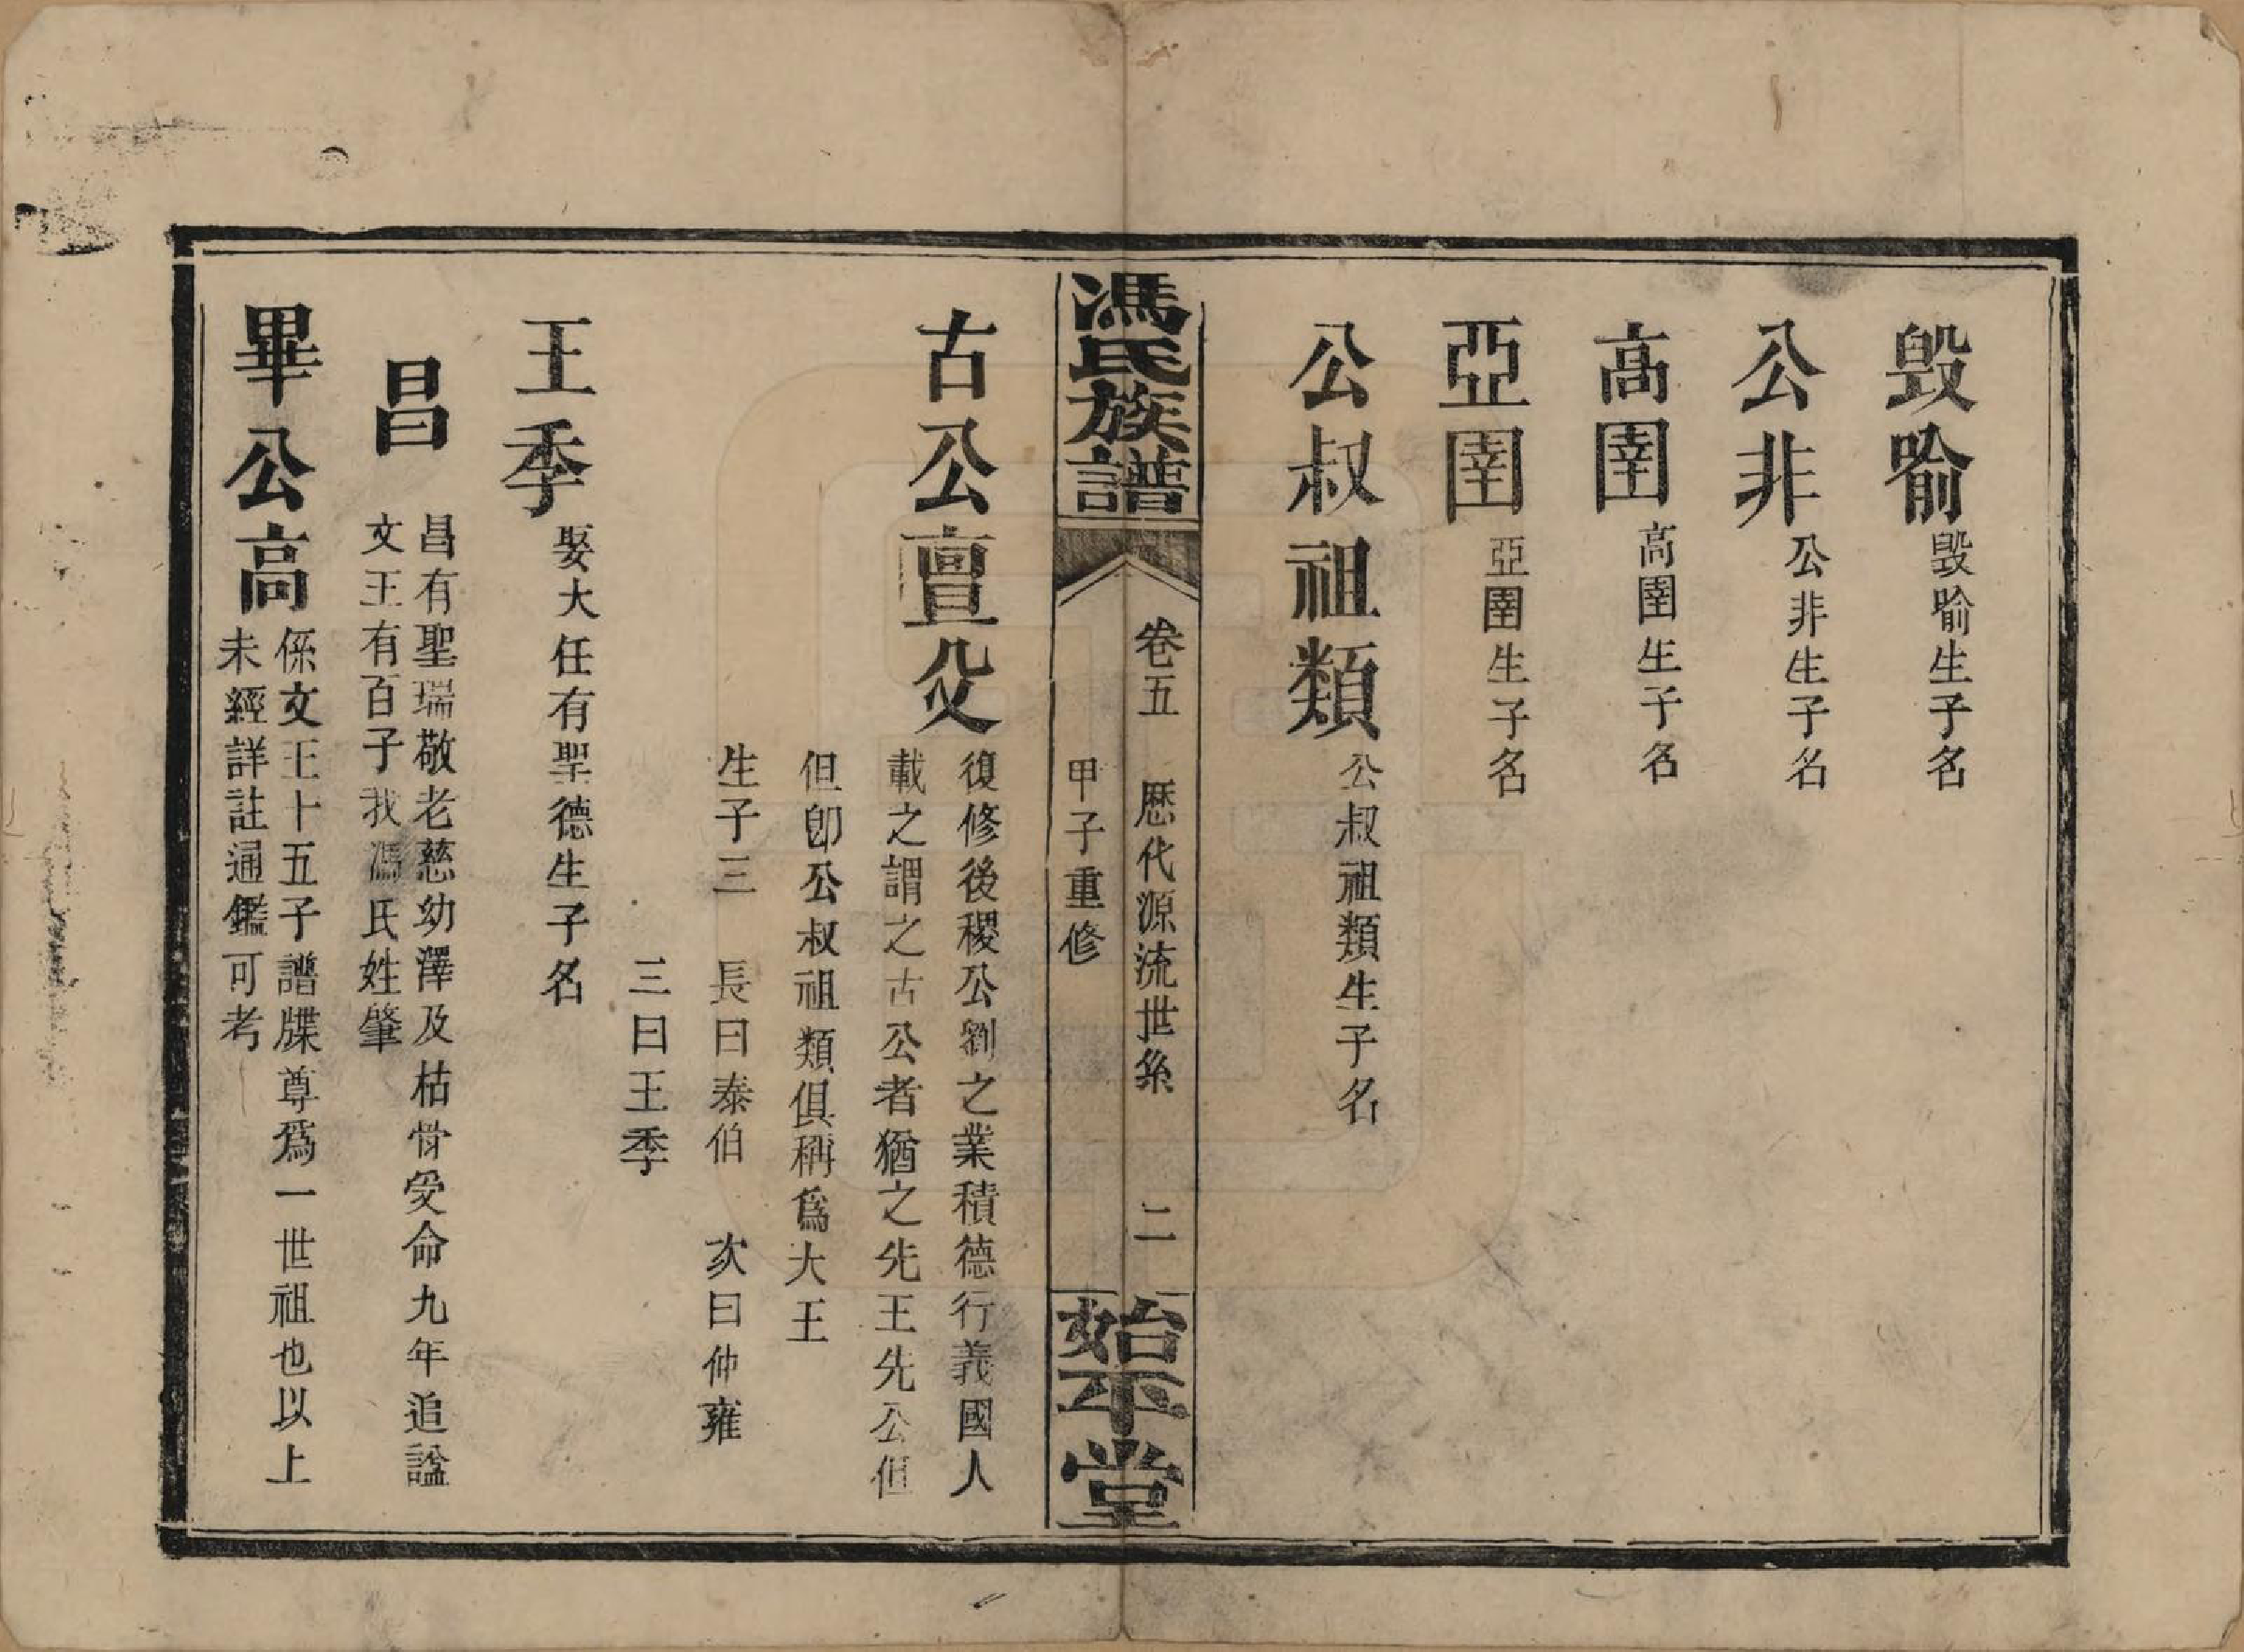 毁喻 毁喻生子名
公非 公非生子名
高圉 高圉生子名
亞圉 亞圉生子名
公叔祖類 公叔祖類生子名
馮氏族譜
卷五 歷代源流世系 二
甲子重修
始平堂
古公亶父
復修後稷公劉之業積德行義國人
載之謂之古公者猶之先王先公但
但卽公叔祖類俱稱爲大王
生子三 長曰泰伯 次曰仲雍
三曰王季
王季 娶大任有聖德生子名
昌
昌有聖瑞敬老慈幼澤及枯骨受命九年追諡
文王有百子我馮氏姓肇
畢公高
係文王十五子譜牒尊爲一世祖也以上
未經詳註通鑑可考